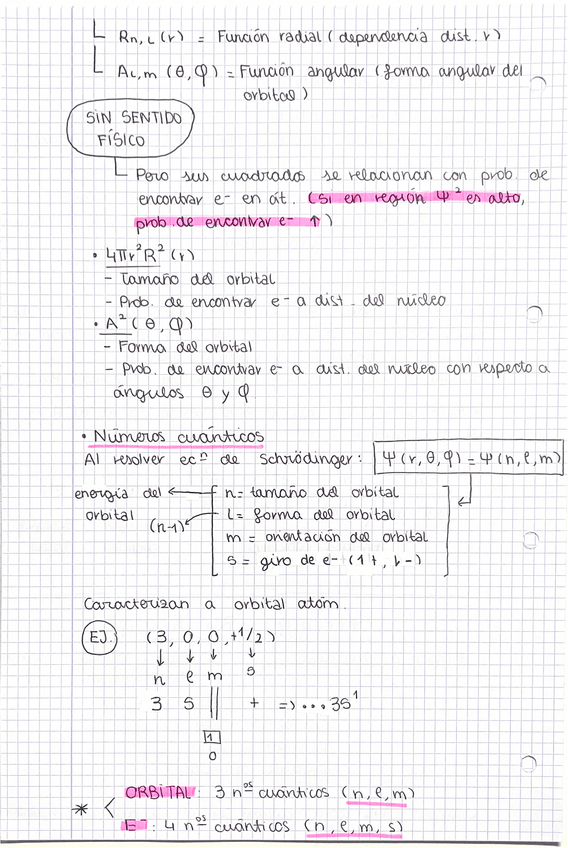 Rn,l(r) = Función radial (dependencia dist. r)
Al,m (θ,φ) = Función angular (forma angular del
orbital)
SIN SENTIDO
FÍSICO
Pero sus cuadrados se relacionan con prob. de
encontrar e- en át. (Si en región Ψ² es alto,
prob. de encontrar e- ↑)
• 4πr²R²(r)
- Tamaño del orbital
- Prob. de encontrar e- a dist. del núcleo
• A²(θ,φ)
- Forma del orbital
- Prob. de encontrar e- a dist. del núcleo con respecto a
ángulos θ y φ
• Números cuánticos
Al resolver ecⁿ de Schrödinger: Ψ(r,θ,φ) = Ψ(n,l,m)
energía del ← n = tamaño del orbital
orbital (n-1) ← l = forma del orbital
m = orientación del orbital
s = giro de e- (1+, ↓-)
Caracterizan a orbital atóm.
EJ. (3, 0, 0, +1/2)
↓ ↓ ↓ ↓
n l m s
3 s || + => ...3s¹
1
0
* < ORBITAL: 3 nºs cuánticos (n,l,m)
E-: 4 nºs cuánticos (n,l,m,s)